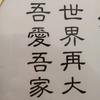 世界再大
吾愛吾家